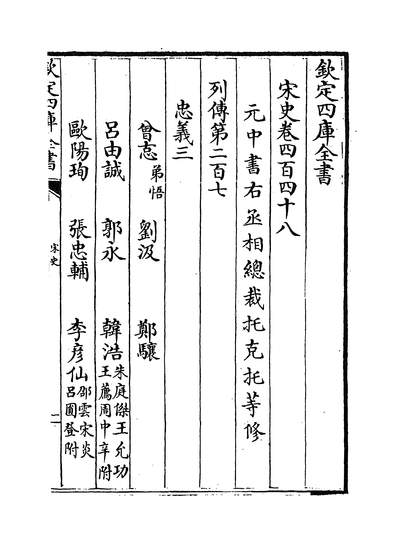 欽定四庫全書
宋史卷四百四十八
元中書右丞相總裁托克托等修
列傳第二百七
忠義三
曾忞 弟悟 劉汲 鄭驤
呂由誠 郭永 韓浩 朱庭傑王允功王薦周中辛附
歐陽珣 張忠輔 李彦仙 邵雲宋炎呂圓登附
欽定四庫全書
宋史
一